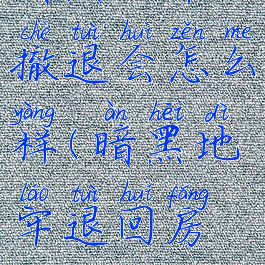 chè tuì huì zěn me
撤退会怎么
yàng àn hēi dì
样(暗黑地
láo tuì huí fáng
牢退回房